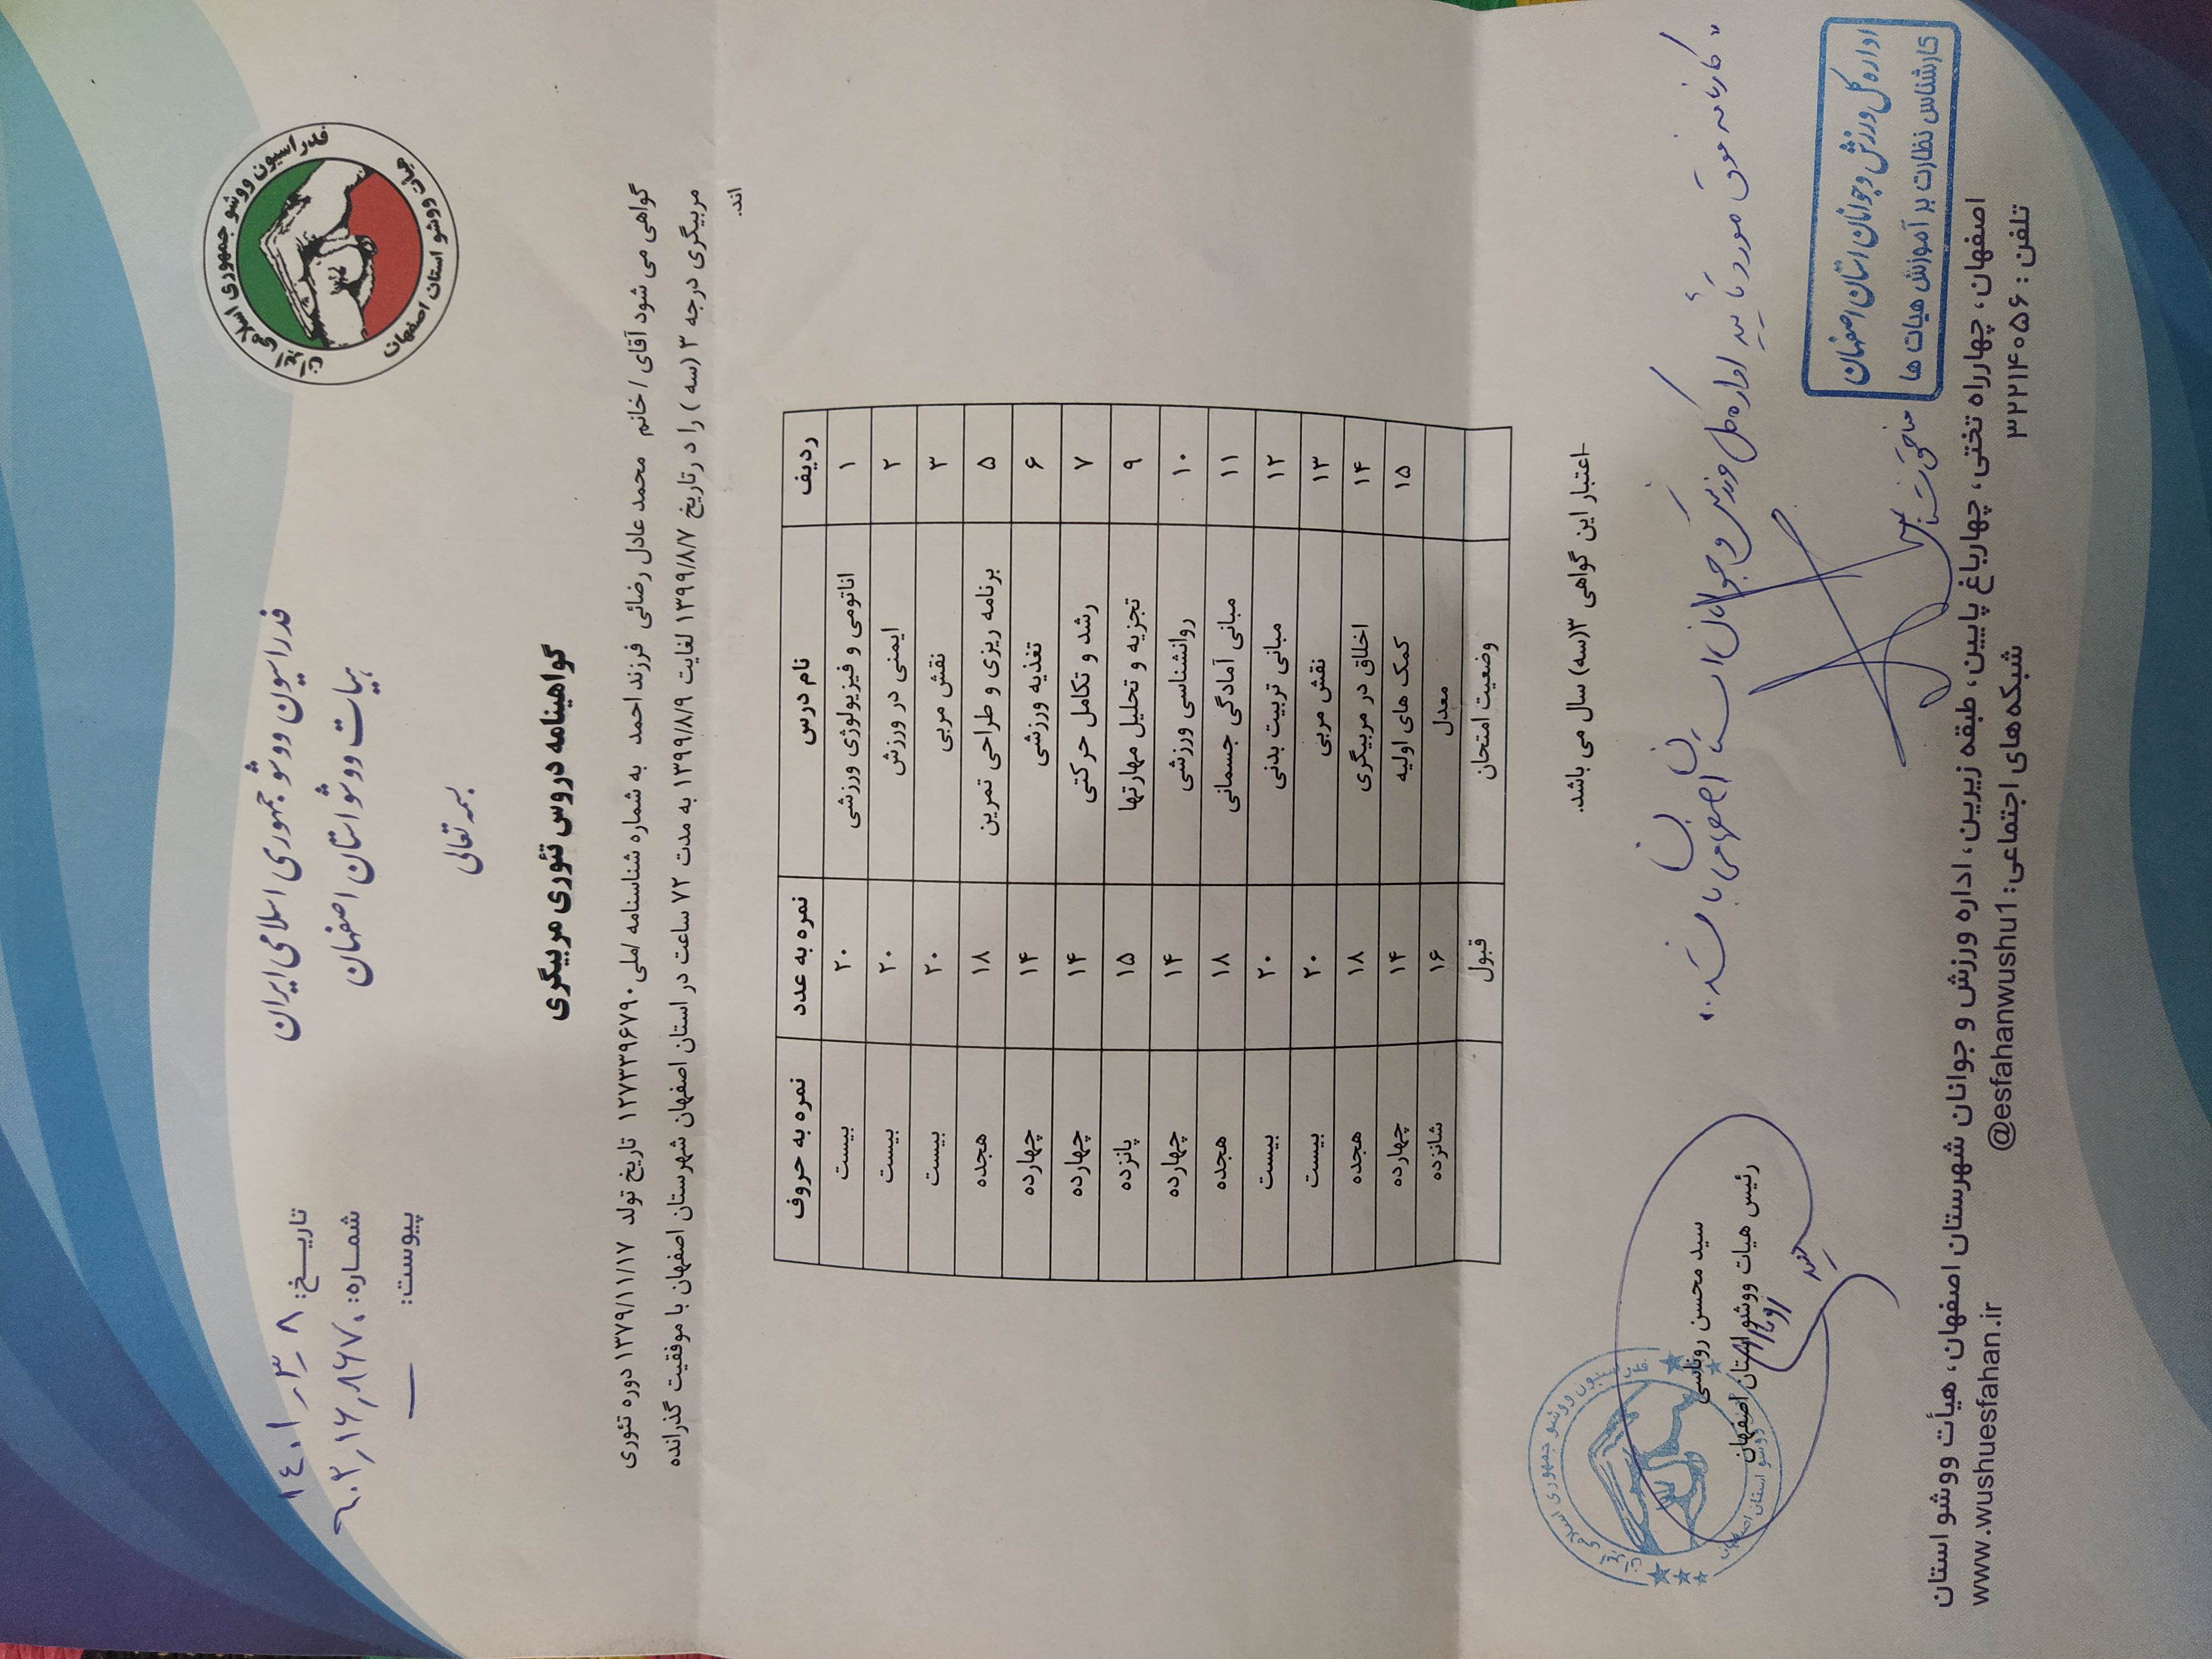 فدراسیون ووشو جمهوری اسلامی ایران
هیات ووشو استان اصفهان
فدراسیون ووشو جمهوری اسلامی ایران
هیات ووشو استان اصفهان
بسمه تعالی
تاریـــخ: ۱۴۰۱٫۳٫۸
شمـــاره:
پیوست: —
گواهینامه دروس تئوری مربیگری
گواهی می شود آقای / خانم محمد عادل رضائی فرزند احمد به شماره شناسنامه /ملی ۱۲۷۳۳۹۶۷۹۰ تاریخ تولد ۱۳۷۹/۱۱/۱۷ دوره تئوری
مربیگری درجه ۳ (سه ) را د رتاریخ ۱۳۹۹/۸/۷ لغایت ۱۳۹۹/۸/۹ به مدت ۷۲ ساعت در استان اصفهان شهرستان اصفهان با موفقیت گذرانده
اند.
ردیف نام درس نمره به عدد نمره به حروف
۱ اناتومی و فیزیولوژی ورزشی ۲۰ بیست
۲ ایمنی در ورزش ۲۰ بیست
۳ نقش مربی ۲۰ بیست
۵ برنامه ریزی و طراحی تمرین ۱۸ هجده
۶ تغذیه ورزشی ۱۴ چهارده
۷ رشد و تکامل حرکتی ۱۴ چهارده
۹ تجزیه و تحلیل مهارتها ۱۵ پانزده
۱۰ روانشناسی ورزشی ۱۴ چهارده
۱۱ مبانی آمادگی جسمانی ۱۸ هجده
۱۲ مبانی تربیت بدنی ۲۰ بیست
۱۳ نقش مربی ۲۰ بیست
۱۴ اخلاق در مربیگری ۱۸ هجده
۱۵ کمک های اولیه ۱۴ چهارده
معدل ۱۶ شانزده
وضعیت امتحان قبول
-اعتبار این گواهی ۳(سه) سال می باشد.
" کارنامه فوق مورد تأیید اداره کل ورزش و جوانان استان اصفهان می باشد."
سید محسن روناسی
رئیس هیات ووشو استان اصفهان
اداره کل ورزش و جوانان استان اصفهان
کارشناس نظارت بر آموزش هیات ها
اصفهان، چهارراه تختی، چهارباغ پایین، طبقه زیرین، اداره ورزش و جوانان شهرستان اصفهان، هیأت ووشو استان
تلفن : ۳۲۲۱۴۰۵۶ شبکه‌های اجتماعی: @esfahanwushu1 www.wushuesfahan.ir